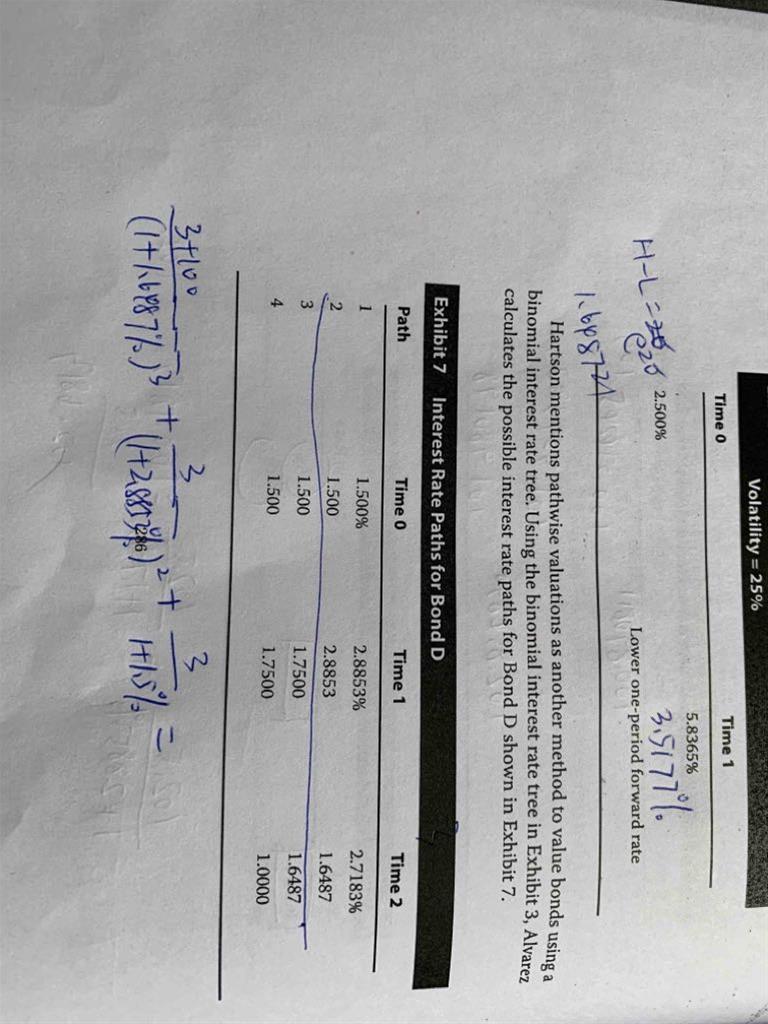 Volatility = 25%
Time 0 Time 1
5.8365%
2.500% 3.5177%
Lower one-period forward rate
H-L =
e2δ
1.648721
Hartson mentions pathwise valuations as another method to value bonds using a
binomial interest rate tree. Using the binomial interest rate tree in Exhibit 3, Alvarez
calculates the possible interest rate paths for Bond D shown in Exhibit 7.
Exhibit 7 Interest Rate Paths for Bond D
Path Time 0 Time 1 Time 2
1 1.500% 2.8853% 2.7183%
2 1.500 2.8853 1.6487
3 1.500 1.7500 1.6487
4 1.500 1.7500 1.0000
3+100 3 3
(1+1.6487%)³ + (1+2.8853%)² + 1+1.5% =
286